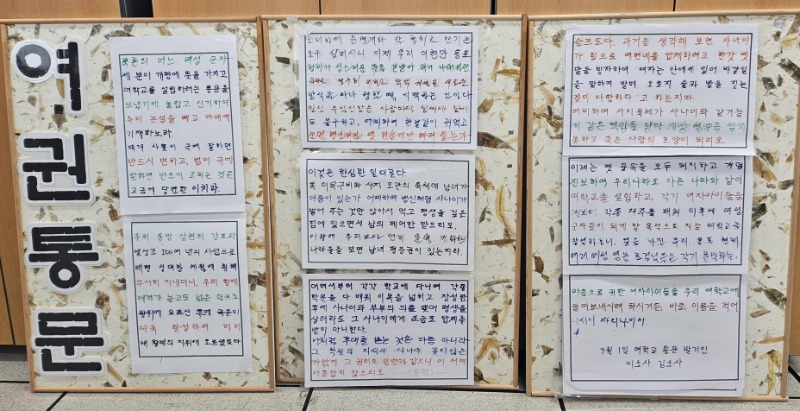 여권통문
북촌의 어느 여성 군자
세 분이 개명에 뜻을 가지고
여학교를 설립하려는 통문을
보냈기에 놀랍고 신기하여
우리 논설을 빼고 아래에
기재하노라.
대개 사물이 극에 달하면
반드시 변하고, 법이 극에
달하면 반드시 고치는 것은
고금에 당연한 이치라.
우리 동방 삼천리 강토와
열성조 500여 년의 사업으로
태평 성대한 세월에 취해
무사히 지내더니, 우리 황제
폐하가 높고도 넓은 덕으로
왕위에 오르신 후에 국운이
더욱 왕성하여 이미
대 황제의 지위에 오르셨도다.
이것은 한심한 일이로다
혹 이목구비와 사지 오관의 육체에 남녀가
다름이 있는가 어찌하여 병신처럼 사나이가
벌어 주는 것만 앉아서 먹고 평생을 깊은
집에 있으면서 남의 제어만 받으리오.
나라들을 보면 남녀 평등권이 있는지라.
어려서부터 각각 학교에 다니며 각종
학문을 다 배워 이목을 넓히고 장성한
후에 사나이와 부부의 의를 맺어 평생을
살더라도 그 사나이에게 조금도 압제를
받지 아니한다.
이처럼 후대를 받는 것은 다름 아니라
그 학문과 지식이 사나이 못지않은
까닭에 그 권리도 일반과 같으니 이 어찌
아름답지 않으리오
슬프도다. 과거를 생각해 보면 사나이
가 힘으로 여편네를 압제하려고 한갓 옛
말을 빙자하여 여자는 안에서 있어 바깥일
을 말하지 말며, 오로지 술과 밥을 짓는
것이 마땅하다고 하는지라.
어찌하여 사지육체가 사나이와 같거늘
이제는 옛 풍속을 모두 폐지하고 개명
진보하여 우리나라도 다른 나라와 같이
여학교를 설립하고, 각기 여자아이들을
보내어 각종 재주를 배워 이후에 여성
군자들이 되게 할 목적으로 지금 여학교를
창설하오니, 뜻을 가진 우리 동포 형제,
마음으로 귀한 여자아이들을 우리 여학교에
들여보내시려 하시거든, 바로 이름을 적어
내시기 바라나이다
9월 1일 여학교 통문 발기인
이소사 김소사